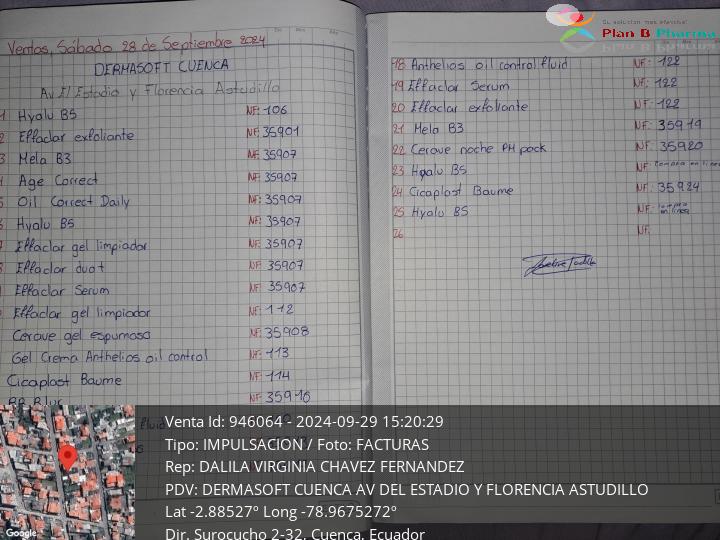 Ventas, Sábado 28 de Septiembre 2024
DERMASOFT CUENCA
Av El Estadio y Florencia Astudillo
1 Hyalu B5 NF: 106
2 Effaclar exfoliante NF: 35901
3 Mela B3 NF: 35907
Age Correct NF: 35907
5 Oil Correct Daily NF: 35907
Hyalu B5 NF: 35907
Effaclar gel limpiador NF: 35907
Effaclar duo+ NF: 35907
Effaclar Serum NF: 35907
Effaclar gel limpiador NF: 112
Cerave gel espumoso NF: 35908
Gel Crema Anthelios oil control NF: 113
Cicaplast Baume NF: 114
BB Blur NF: 35916
fluid
18 Anthelios oil control fluid NF: 122
19 Effaclar Serum NF: 122
20 Effaclar exfoliante NF: 122
21 Mela B3 NF: 35919
22 Cerave noche PM pack NF: 35920
23 Hyalu B5 NF: Compra en linea
24 Cicaplast Baume NF: 35924
25 Hyalu B5 NF: Compra en linea
26 NF:
Su solución más efectiva!
Plan B Pharma
Venta Id: 946064 - 2024-09-29 15:20:29
Tipo: IMPULSACION / Foto: FACTURAS
Rep: DALILA VIRGINIA CHAVEZ FERNANDEZ
PDV: DERMASOFT CUENCA AV DEL ESTADIO Y FLORENCIA ASTUDILLO
Lat -2.88527° Long -78.9675272°
Dir. Surocucho 2-32, Cuenca, Ecuador
Google